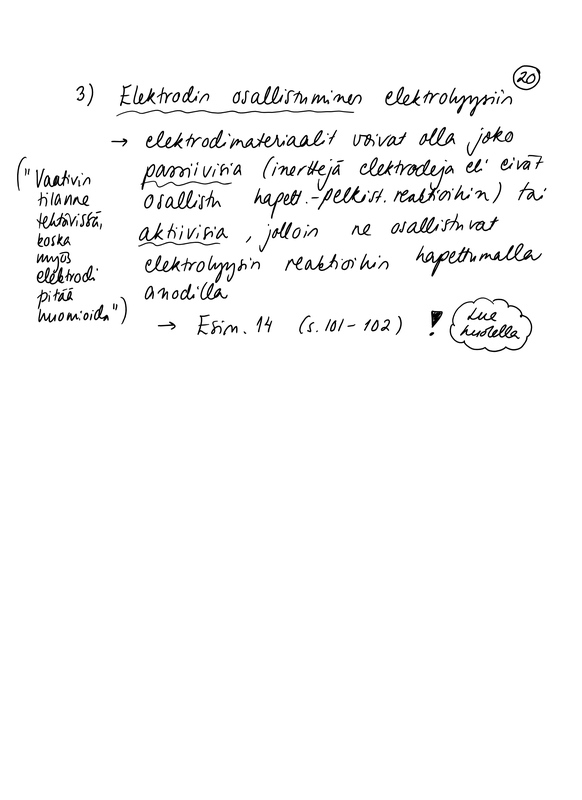 20
3) Elektrodin osallistuminen elektrolyysiin
→ elektrodimateriaalit voivat olla joko
passiivisia (inerttejä elektrodeja eli eivät
osallistu hapett.-pelkist. reaktioihin) tai
aktiivisia, jolloin ne osallistuvat
elektrolyysin reaktioihin hapettumalla
anodilla
("Vaativin
tilanne
tehtävissä,
koska
myös
elektrodi
pitää
huomioida")
→ Esim. 14 (s. 101-102) !
Lue
huolella